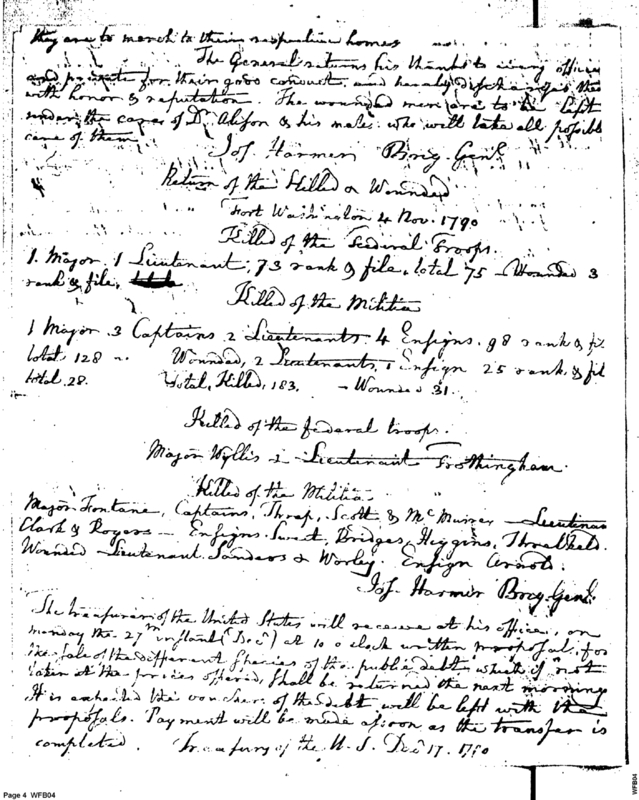 they are to march to their respective homes
The General returns his thanks to every officer
and private for their good conduct, and hereby discharges them
with honor & reputation. The wounded men are to be left
under the care of Dr. Alison & his mates who will take all possible
care of them
Jos. Harmer Brig. Genl.
Return of the Killed & Wounded
Fort Washington 4 Nov. 1790
Killed of the Federal Troops.
1 Major 1 Lieutenant, 73 rank & file, total 75 — Wounded 3
rank & file,
Killed of the Militia
1 Major 3 Captains 2 Lieutenants 4 Ensigns. 98 rank & fi
total 128 Wounded, 2 Lieutenants, 1 Ensign 25 rank & fil
total. 28. Total, Killed, 183. — Wounded 31.
Killed of the federal troops.
Major Wyllis 2 Lieutenant Frothingham.
Killed of the Militia
Major Fontane, Captains, Thrap, Scott & McMurrer — Lieutenan
Clark & Rogers — Ensigns. Sweet, Bridges, Higgins, Threlkeld.
Wounded Lieutenant Sanders & Worley. Ensign Arnold.
Jos. Harmer Brig. Genl.
The treasurer of the United States will receive at his office, on
monday the 27th instant (Decr) at 10 o clock written proposals, for
the sale of the different Species of the public debt which if not
taken at the prices offered, Shall be returned the next morning
It is expected the vouchers of the debt will be left with the
proposals. Payment will be made as soon as the transfer is
completed. Treasury of the U. S. Decr 17. 1790
Page 4 WFB04
WFB04